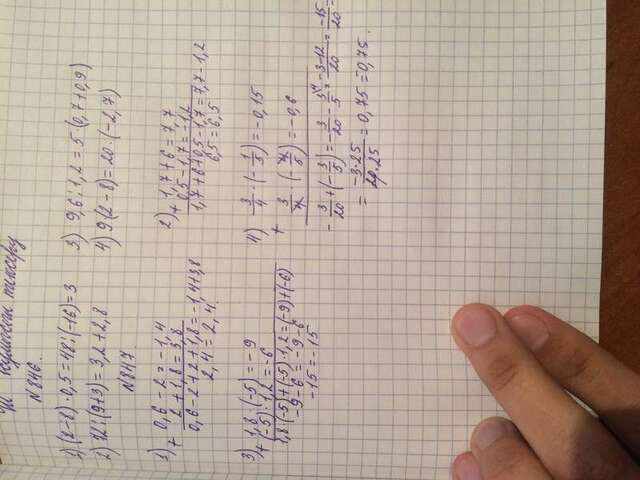 Үй тексеру
N846.
1) (2-8)·0,5=48:(-16)=3
2) 72:(9+3)=3,2+2,8
3) 9,6:1,2=5·(0,7+0,9)
4) 9(2-8)=20·(-2,7)
N847
1) 0,6-2=-1,4
+ 2+1,8=3,8
0,6-2+2+1,8=-1,4+3,8
2,4=2,4
2) + 1,7+6=7,7
0,5-1,7=-1,2
1,7+6+0,5-1,7=7,7-1,2
6,5=6,5
3) 1,8·(-5)=-9
+ (-5)·1,2=-6
1,8(-5)+(-5)·1,2=(-9)+(-6)
-9-6=-9-6
-15=-15
4) 3/4·(-1/5)=-0,15
+ 3/4·(-4/5)=-0,6
-3/20+(-3/5)=-3/20-3/5=-3-12/20=-15/20=
=-3·25/20·25=0,75=0,75.